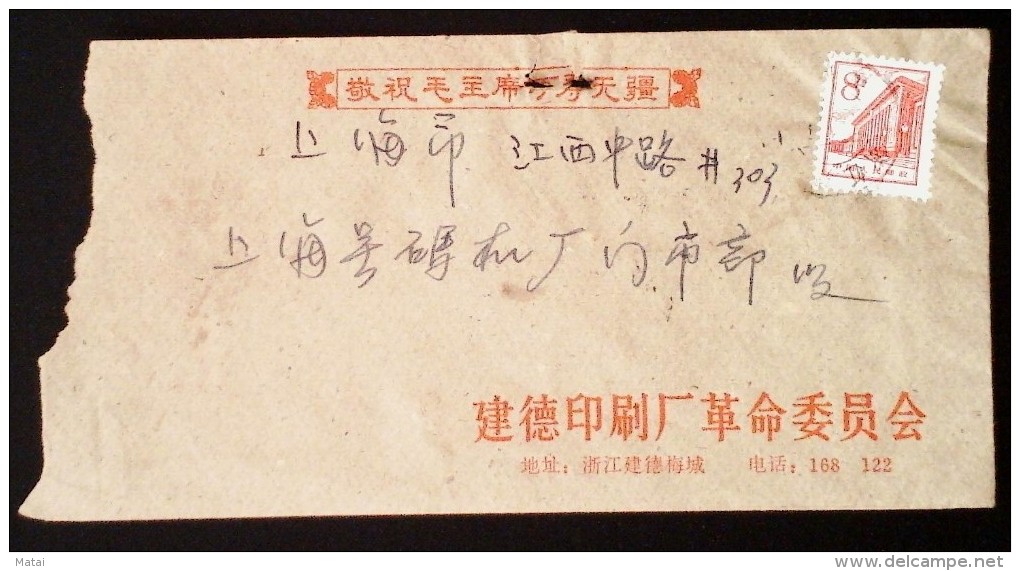 敬祝毛主席万寿无疆
8
上海市 江西中路#303
上海号码机厂门市部 收
中国人民邮政
建德印刷厂革命委员会
地址：浙江建德梅城 电话：168 122
Matai
delcampe.net